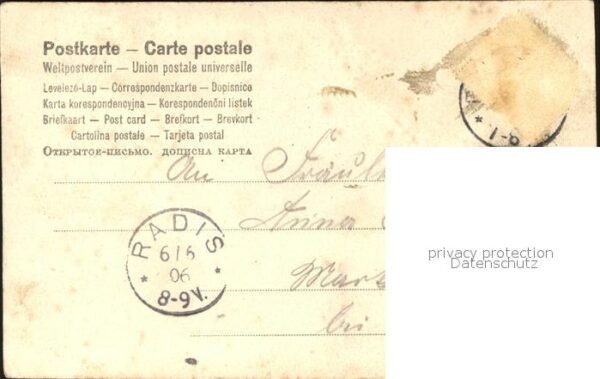 Postkarte – Carte postale
Weltpostverein – Union postale universelle
Levelező-Lap – Correspondenzkarte – Dopisnice
Karta korespondencyjna – Korespondenční lístek
Briefkaart – Post card – Brefkort – Brevkort
Cartolina postale – Tarjeta postal
Открытое-письмо. дописна карта
An Fräul
Anna
bei
RADIS
6/6
06
* 8-9V. *
privacy protection
Datenschutz